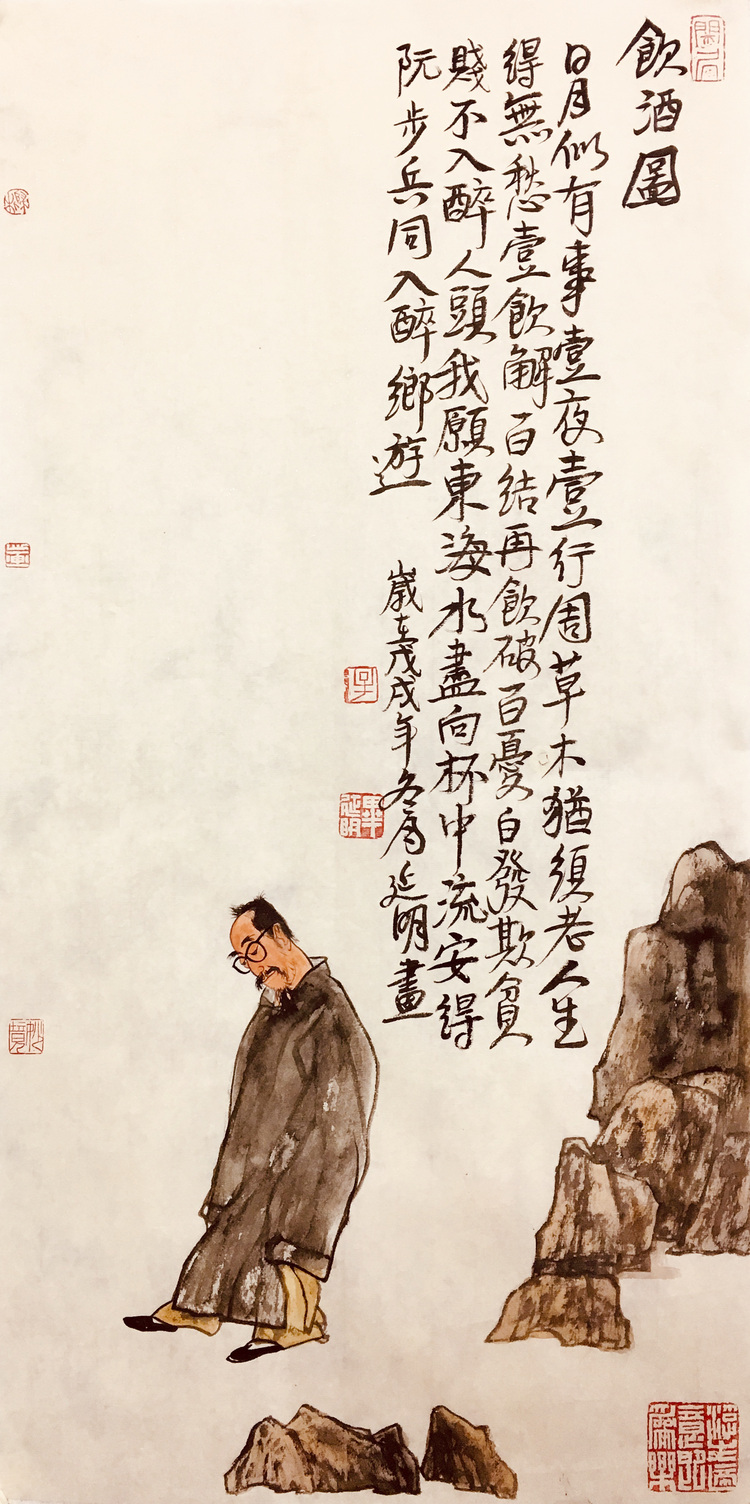 飲酒圖
日月似有事壹夜壹行周草木猶須老人生
得無愁壹飲解百結再飲破百憂白發欺貧
賤不入醉人頭我願東海水盡向杯中流安得
阮步兵同入醉鄉遊
歲在戊戌年冬 延明畫
畢延明